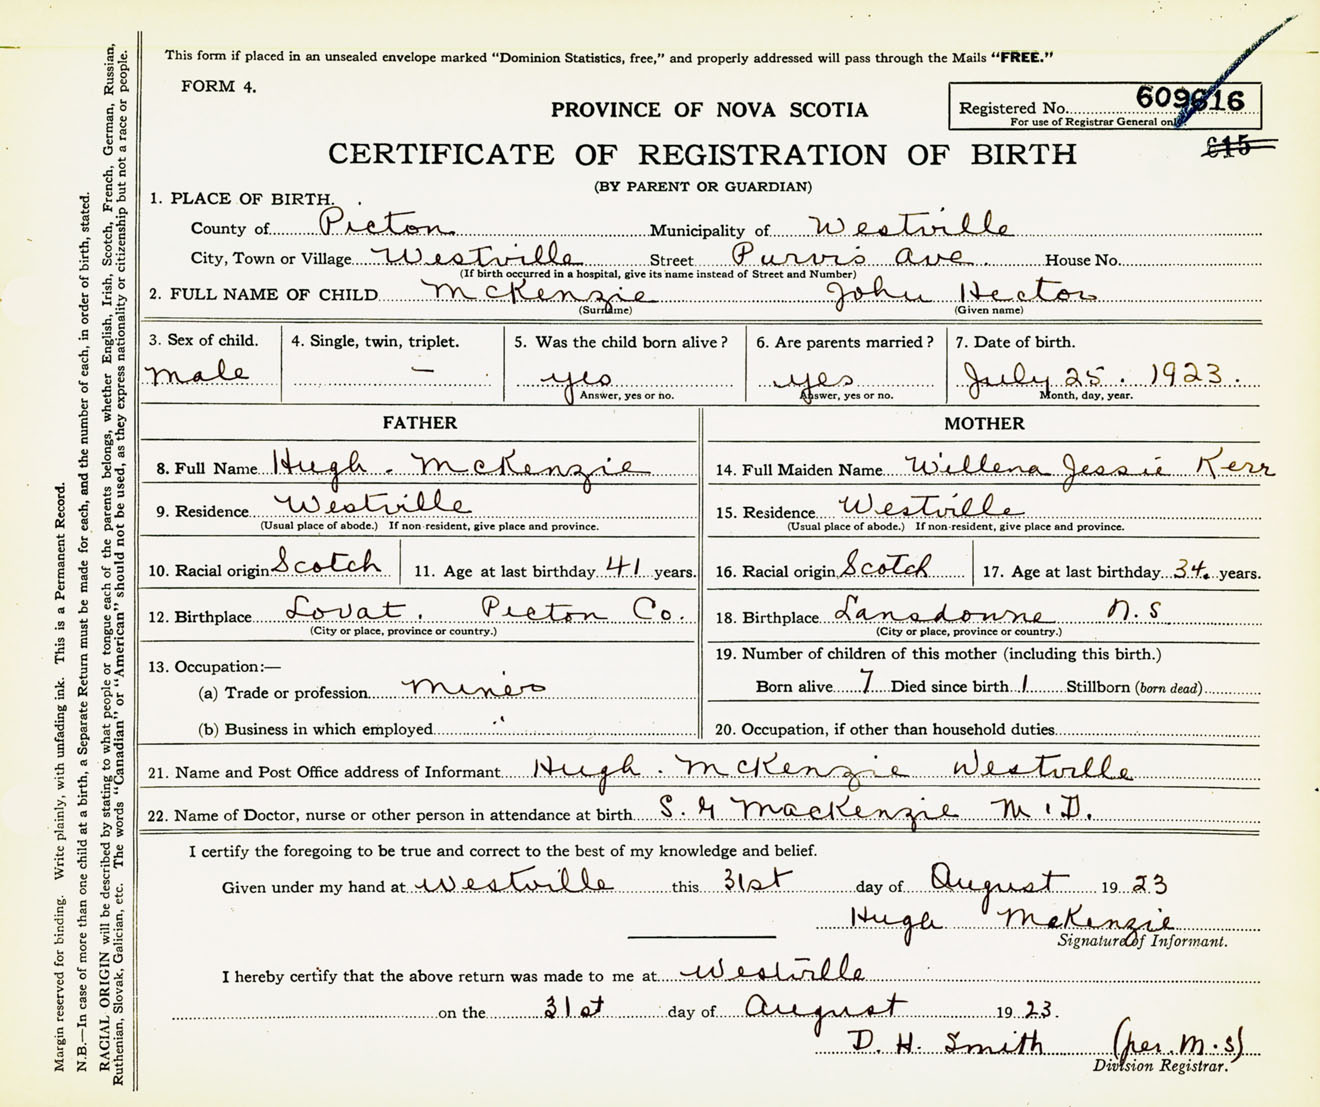 This form if placed in an unsealed envelope marked "Dominion Statistics, free," and properly addressed will pass through the Mails "FREE."
FORM 4.
PROVINCE OF NOVA SCOTIA
Registered No. 609616
For use of Registrar General only
CERTIFICATE OF REGISTRATION OF BIRTH
(BY PARENT OR GUARDIAN)
1. PLACE OF BIRTH.
County of Picton Municipality of Westville
City, Town or Village Westville Street Purvis Ave. House No.
(If birth occurred in a hospital, give its name instead of Street and Number)
2. FULL NAME OF CHILD McKenzie John Hector
(Surname) (Given name)
3. Sex of child. 4. Single, twin, triplet. 5. Was the child born alive? 6. Are parents married? 7. Date of birth.
male — yes yes July 25. 1923.
Answer, yes or no. Answer, yes or no. Month, day, year.
FATHER MOTHER
8. Full Name Hugh. McKenzie 14. Full Maiden Name Willena Jessie Kerr
9. Residence Westville 15. Residence Westville
(Usual place of abode.) If non-resident, give place and province. (Usual place of abode.) If non-resident, give place and province.
10. Racial origin Scotch 11. Age at last birthday 41 years. 16. Racial origin Scotch 17. Age at last birthday 34. years.
12. Birthplace Lovat. Picton Co. 18. Birthplace Lansdowne N.S
(City or place, province or country.) (City or place, province or country.)
13. Occupation:— 19. Number of children of this mother (including this birth.)
(a) Trade or profession miner Born alive 7 Died since birth 1 Stillborn (born dead)
(b) Business in which employed " 20. Occupation, if other than household duties
21. Name and Post Office address of Informant Hugh. McKenzie Westville
22. Name of Doctor, nurse or other person in attendance at birth S. G MacKenzie M.D.
I certify the foregoing to be true and correct to the best of my knowledge and belief.
Given under my hand at Westville this 31st day of August 1923
Hugh McKenzie
Signature of Informant.
I hereby certify that the above return was made to me at Westville
on the 31st day of August 1923.
D. H. Smith (per. M. S)
Division Registrar.
Margin reserved for binding. Write plainly, with unfading ink. This is a Permanent Record.
N.B.—In case of more than one child at a birth, a Separate Return must be made for each, and the number of each, in order of birth, stated.
RACIAL ORIGIN will be described by stating to what people or tongue each of the parents belongs, whether English, Irish, Scotch, French, German, Russian,
Ruthenian, Slovak, Galician, etc. The words "Canadian" or "American" should not be used, as they express nationality or citizenship but not a race or people.